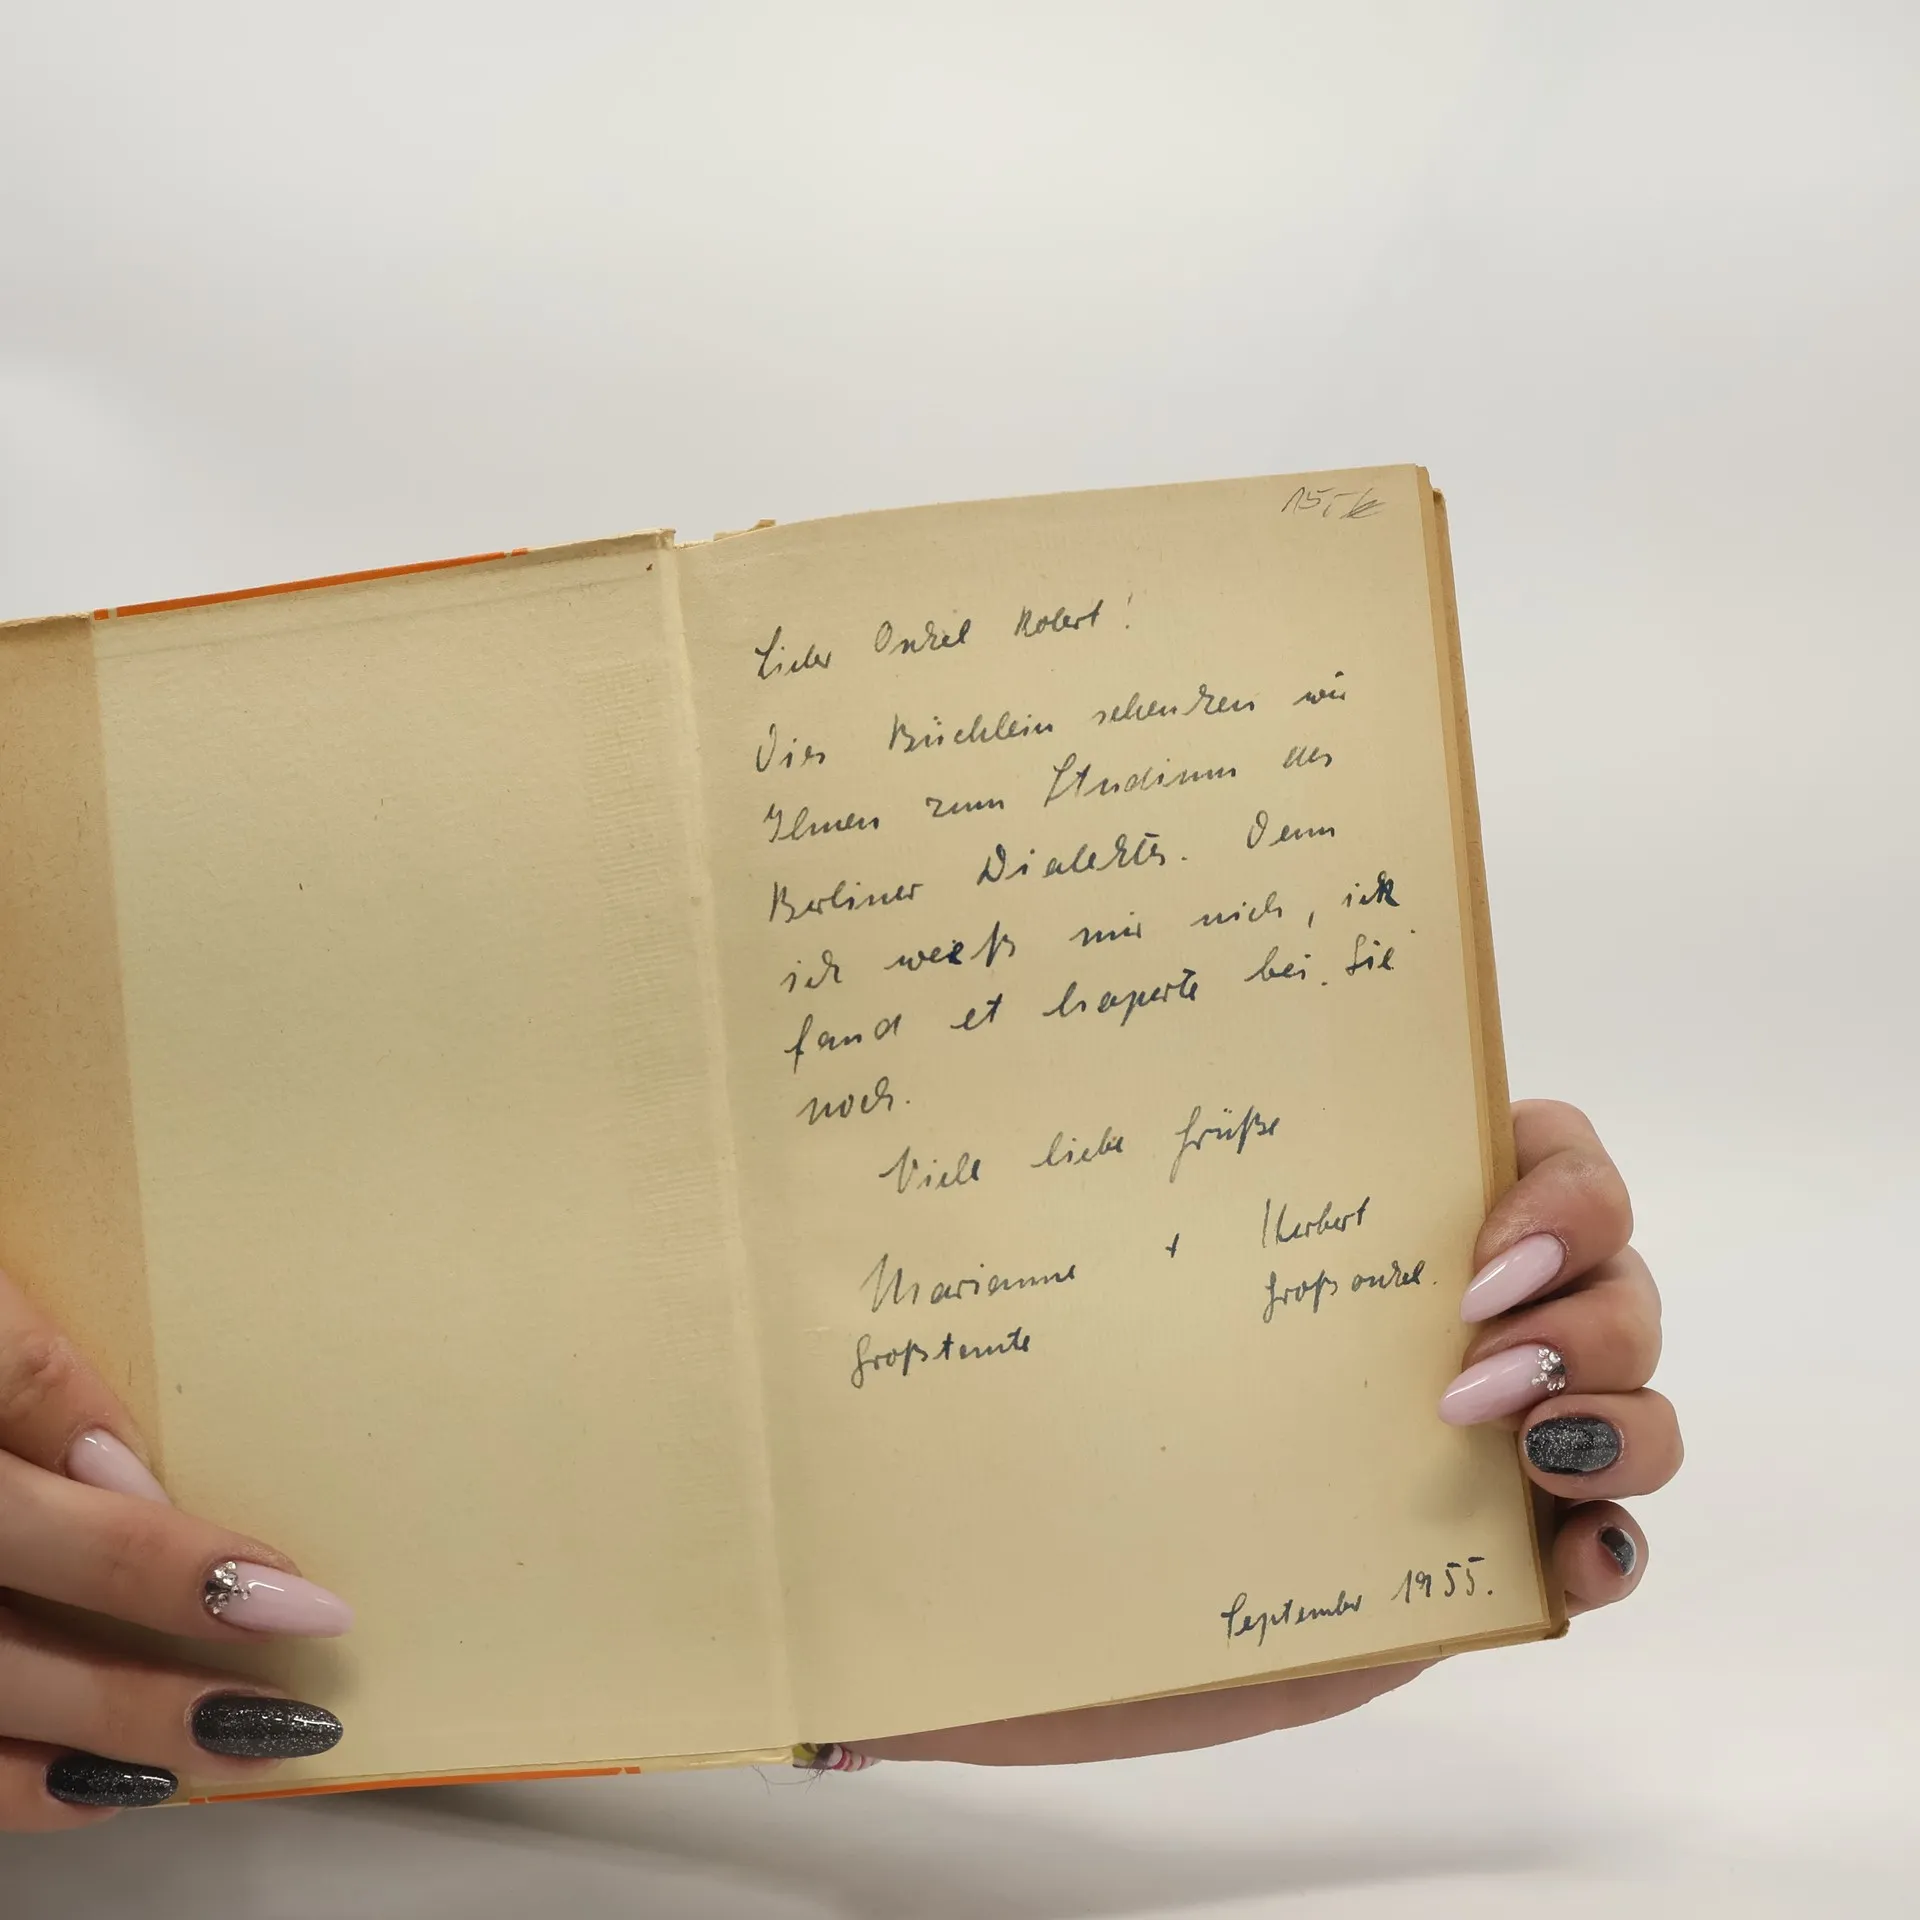 15,-
Lieber Onkel Robert!
Dies Büchlein schenken wir
Ihnen zum Studium des
Berliner Dialektes. Denn
ick weeß mir nich, ick
fand et haperte bei Sie
noch.
Viele liebe Grüße
Marianne + Herbert
Großtante Großonkel.
September 1955.